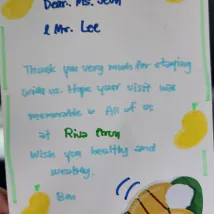 Dear. Ms. Jeon
& Mr. Lee
Thank you very much for staying
with us. Hope your visit was
memorable. All of us
at Riva
wish you healthy and
wealthy.